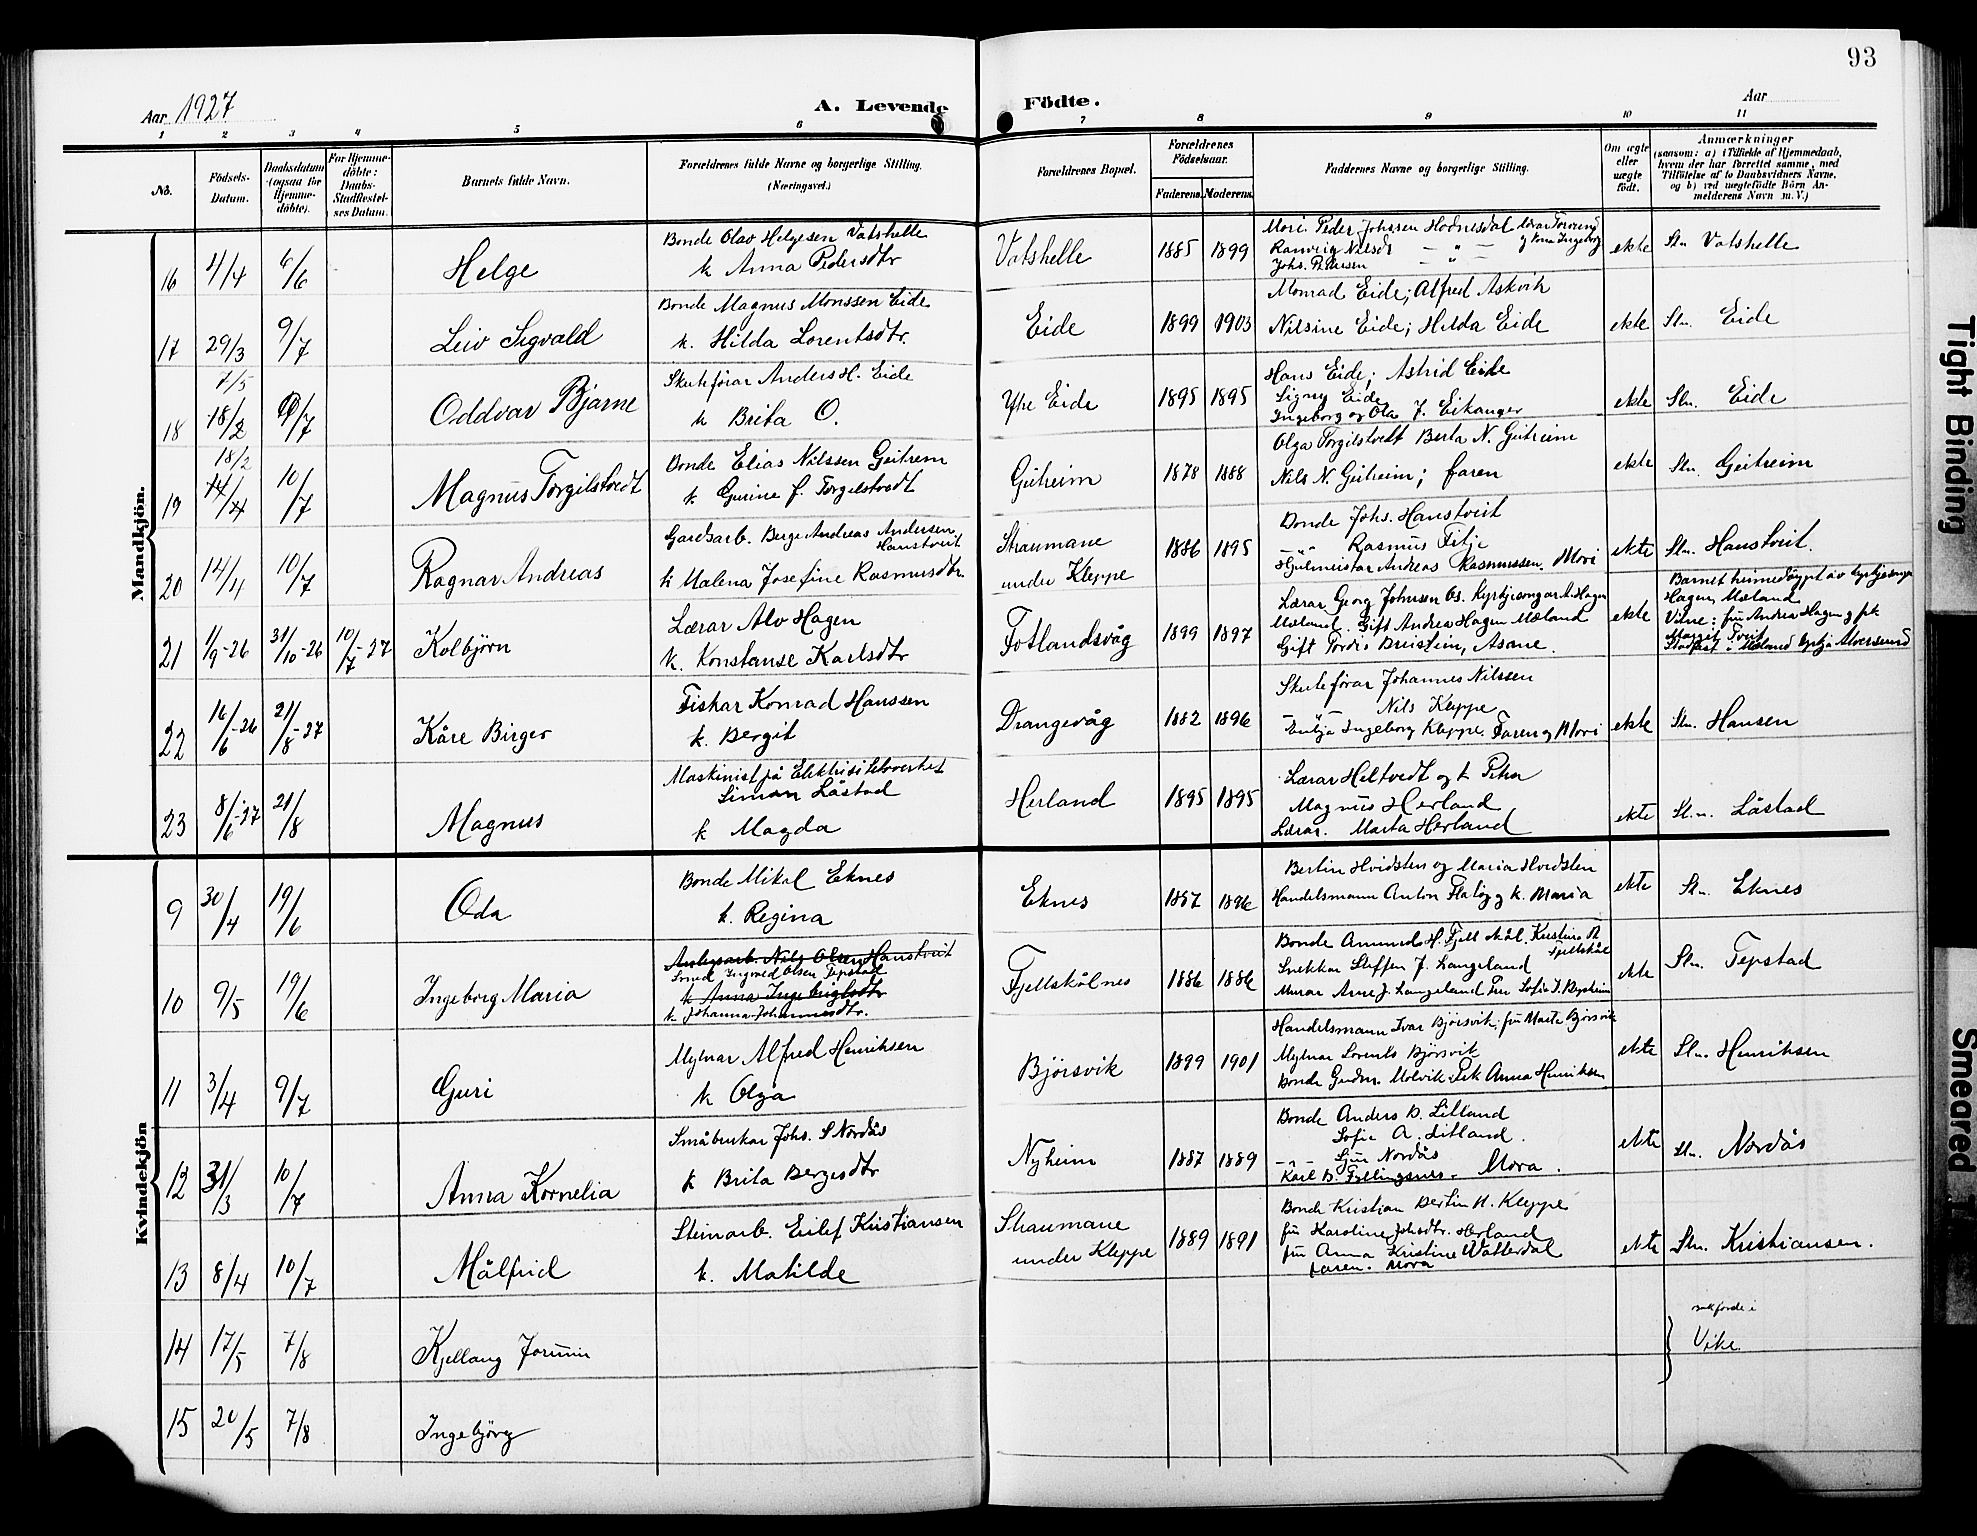 93
Aar 1927
A. Levende Födte.
Aar
1 2 3 4 5 6 7 8 9 10 11
No.
Födsels-Datum.
Daabsdatum (ogsaa for Hjemme-döbte).
For Hjemme-döbte: Daabs-Stadfæstel-ses Datum.
Barnets fulde Navn.
Forældrenes fulde Navne og borgerlige Stilling. (Næringsvei.)
Forældrenes Bopæl.
Forældrenes Födselsaar.
Faderens. Moderens.
Faddernes Navne og borgerlige Stilling.
Om ægte eller uægte födt.
Anmærkninger
(saasom: a) i Tilfælde af Hjemmedaab, hvem der har forrettet samme, med Tilföielse af to Daabsvidners Navne, og b) ved uægtefödte Börn An-melderens Navn m. V.)
Mandkjön.
16 4/4 6/6 Helge
Bonde Olav Helgesen Vatshelle
k Anna Pedersdtr
Vatshelle 1885 1899
Mori Peder Johssen Hodnesdal
Ranveig Nilsdt — " —
Johs. Pedersen — " —
ekte Stn Vatshelle
17 29/3 9/7 Leiv Sigvald
Bonde Magnus Monssen Eide
k. Hilda Lorentsdtr.
Eide 1899 1903
Monrad Eide; Alfred Askvik
Nilsine Eide; Hilda Eide
ekte Stn. Eide
18 7/5 18/2 9/7 Oddvar Bjarne
Skuteförar Anders H. Eide
k Brita O.
Ytre Eide 1895 1895
Hans Eide; Astrid Eide
Signy Eide
Ingeborg og Ola J. Eikanger
ekte Stn. Eide
19 18/2 10/7 Magnus Torgilstvedt
Bonde Elias Nilssen Geitrem
k. Gurine f. Torgilstvedt
Geitheim 1878 1888
Olga Torgilstvedt Berta N. Geitreim
Nils N. Geitreim; faren
ekte Stn. Geitreim
20 14/4 10/7 Ragnar Andreas
Gardsarb. Berge Andreas Andersen Hanstveit
k Malena Josefine Rasmusdtr.
Straumane under Kleppe 1886 1895
Bonde Johs. Hanstveit
— " — Rasmus Titje
Hjulmeistar Andreas Rasmussen. Mori
ekte Stn. Hanstveit.
21 1/9-26 31/10-26 10/7-27 Kolbjörn
Lærar Alv Hagen
k. Konstanse Karlsdtr
Fotlandsvåg 1899 1897
Lærar Georg Johnsen Os. Kyrkjesongar A. Hagen
Mæland. Gift Andrea Hagen Mæland
Gift Tordis Brustein, Asane.
ekte
Barnet heimedöypt av kyrkjesongar
Hagen, Mæland
Vitne: fru Andrea Hagen og frk.
Margit Tveit
Stadfest i Mæland kyrkja Alversund
22 16/6-26 21/8-27 Kåre Birger
Fiskar Konrad Hanssen
k. Bergit
Drangevåg 1882 1896
Skuteförar Johannes Nilssen
— " — Nils Kleppe
Enkja Ingeborg Kleppe. Faren og Mori
ekte Stn. Hansen
23 8/6-27 21/8 Magnus
Maskinist på Elektrisitetsverket
Simon Låstad
k Magda
Herland 1895 1895
Lærar Heltvedt og k Petra
Magnus Herland
Lærar. Marta Herland
ekte St.n. Låstad
Kvindekjön
9 30/4 19/6 Oda
Bonde Mikal Eknes
k. Regina
Eknes 1887 1896
Bertin Hvidsten og Maria Hvidsten
Handelsmann Anton Flatöy og k. Maria
ekte St.n. Eknes
10 9/5 19/6 Ingeborg Maria
Anlegsarb. Nils Olsen Hanstveit
Smed Ingvald Olsen Tepstad
k Anna Ingebrigtsdtr
k Johanna Johannesdtr.
Fjellskålnes 1886 1886
Bonde Amund H. Fjellskål. Kristine A Fjellskål
Snekkar Steffen J. Langeland
Murar Arne J. Langeland
ekte Stn. Tepstad
11 3/4 9/7 Guri
Mylnar Alfred Henriksen
k Olga
Bjørsvik 1899 1901
Handelsmann Ivar Bjørsvik. fru Marte Bjørsvik
Mylnar Lorents Bjørsvik
Bonde Gudm. Molvik. Frk Anna Henriksen
ekte Stn. Henriksen
12 31/3 10/7 Anna Kornelia
Småbrukar Johs. S Nordås
k Brita Bergesdtr
Nyheim 1887 1889
Bonde Anders B. Litland
Sofie A. Litland.
— " — Nordås
Karl B. Fyllingsnes. Mora.
ekte Stn. Nordås
13 8/4 10/7 Målfrid
Steinarb. Eilef Kristiansen
k. Matilde
Straumane under Kleppe 1889 1891
Bonde Kristian Bertin N. Kleppe
fru Karoline Johsdtr. Herland
fru Anna Kristine Watterdal
faren. Mora
ekte Stn. Kristiansen.
14 17/5 7/8 Kjellaug Jorunn
Vike
15 20/5 7/8 Ingebjörg
Tight Binding
Smeared